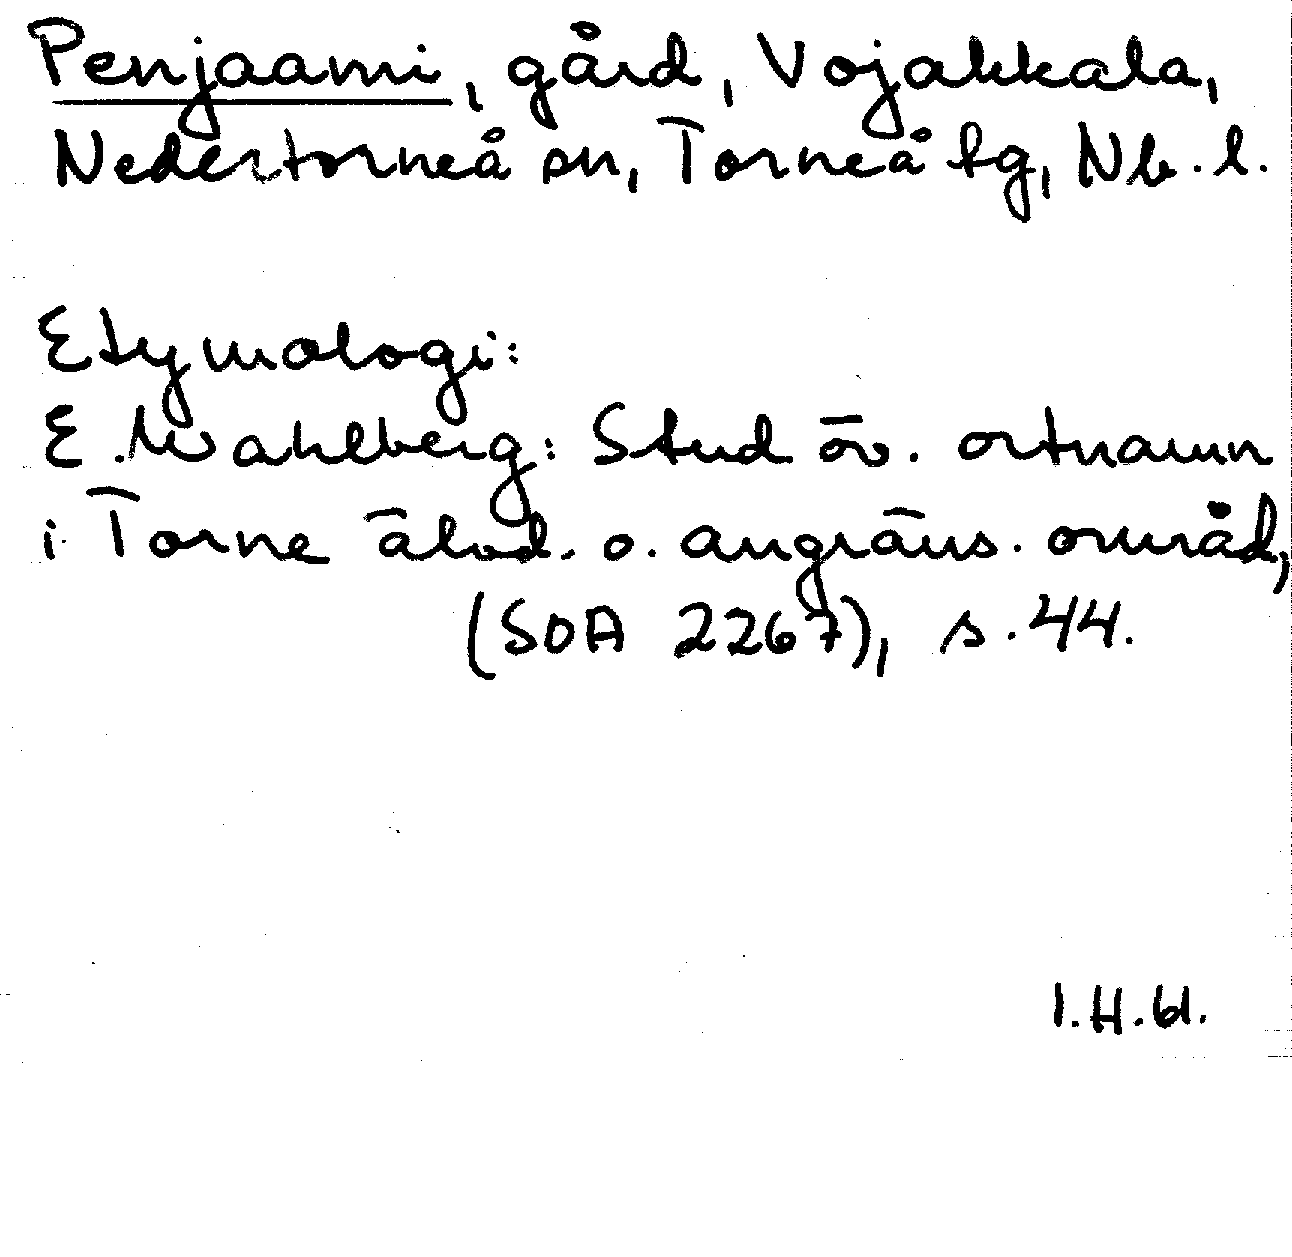 Penjaami, gård, Vojakkala,
Nedertorneå sn, Torneå tg, Nb. l.
Etymologi:
E. Wahlberg: Stud öv. ortnamn
i Torne älvd. o. angräns. område,
(SOA 2267), s. 44.
I.H.61.